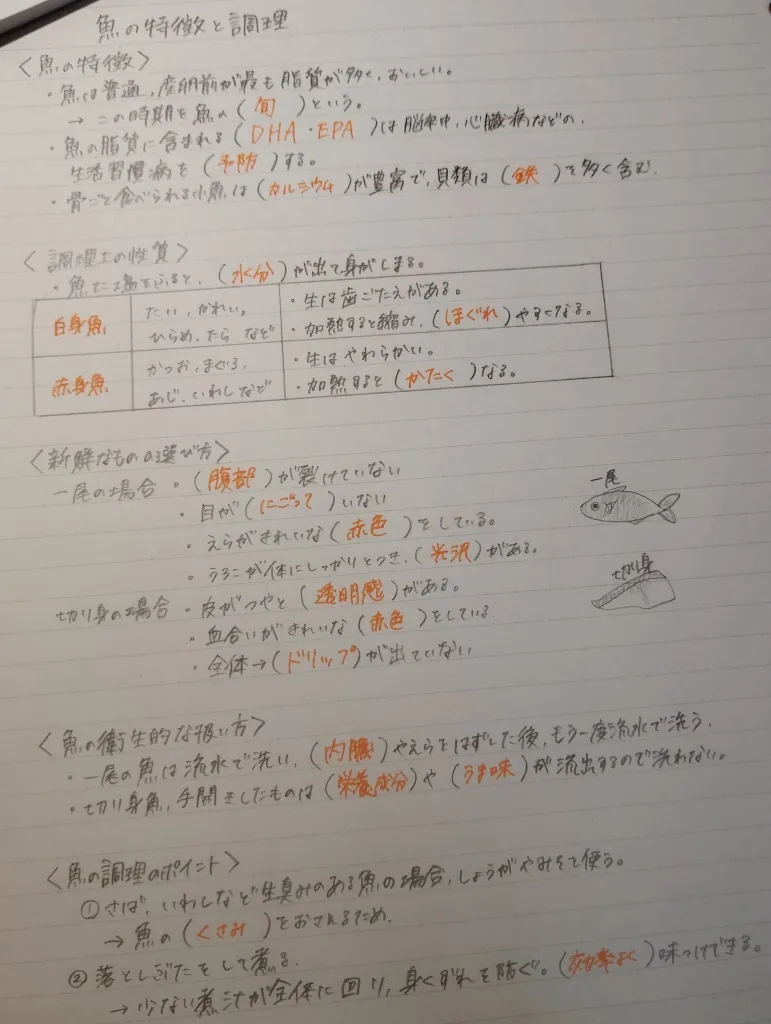 魚の特徴と調理
〈魚の特徴〉
・魚は普通,産卵前が最も脂質が多く,おいしい。
→この時期を魚の(旬)という。
・魚の脂質に含まれる(DHA・EPA)は脳卒中,心臓病などの,
生活習慣病を(予防)する。
・骨ごと食べられる小魚は(カルシウム)が豊富で,貝類は(鉄)を多く含む.
〈調理上の性質〉
・魚に塩をふると,(水分)が出て身がしまる。
白身魚
たい,かれい,
ひらめ,たら など
・生は歯ごたえがある。
・加熱すると縮み,(ほぐれ)やすくなる。
赤身魚
かつお,まぐろ,
あじ,いわしなど
・生はやわらかい。
・加熱すると(かたく)なる。
〈新鮮なものの選び方〉
一尾の場合・(腹部)が裂けていない
・目が(にごって)いない
・えらがきれいな(赤色)をしている。
・うろこが体にしっかりとつき,(光沢)がある。
切り身の場合・皮がつやと(透明感)がある。
・血合いがきれいな(赤色)をしている.
・全体→(ドリップ)が出ていない
一尾
切り身
〈魚の衛生的な扱い方〉
・一尾の魚は流水で洗い,(内臓)やえらをはずした後,もう一度流水で洗う.
・切り身魚,手開きしたものは(栄養成分)や(うま味)が流出するので洗わない。
〈魚の調理のポイント〉
①さば,いわしなど生臭みのある魚の場合,しょうがやみそを使う。
→魚の(くさみ)をおさえるため.
②落としぶたをして煮る.
→少ない煮汁が全体に回り,身くずれを防ぐ。(効率よく)味つけできる。